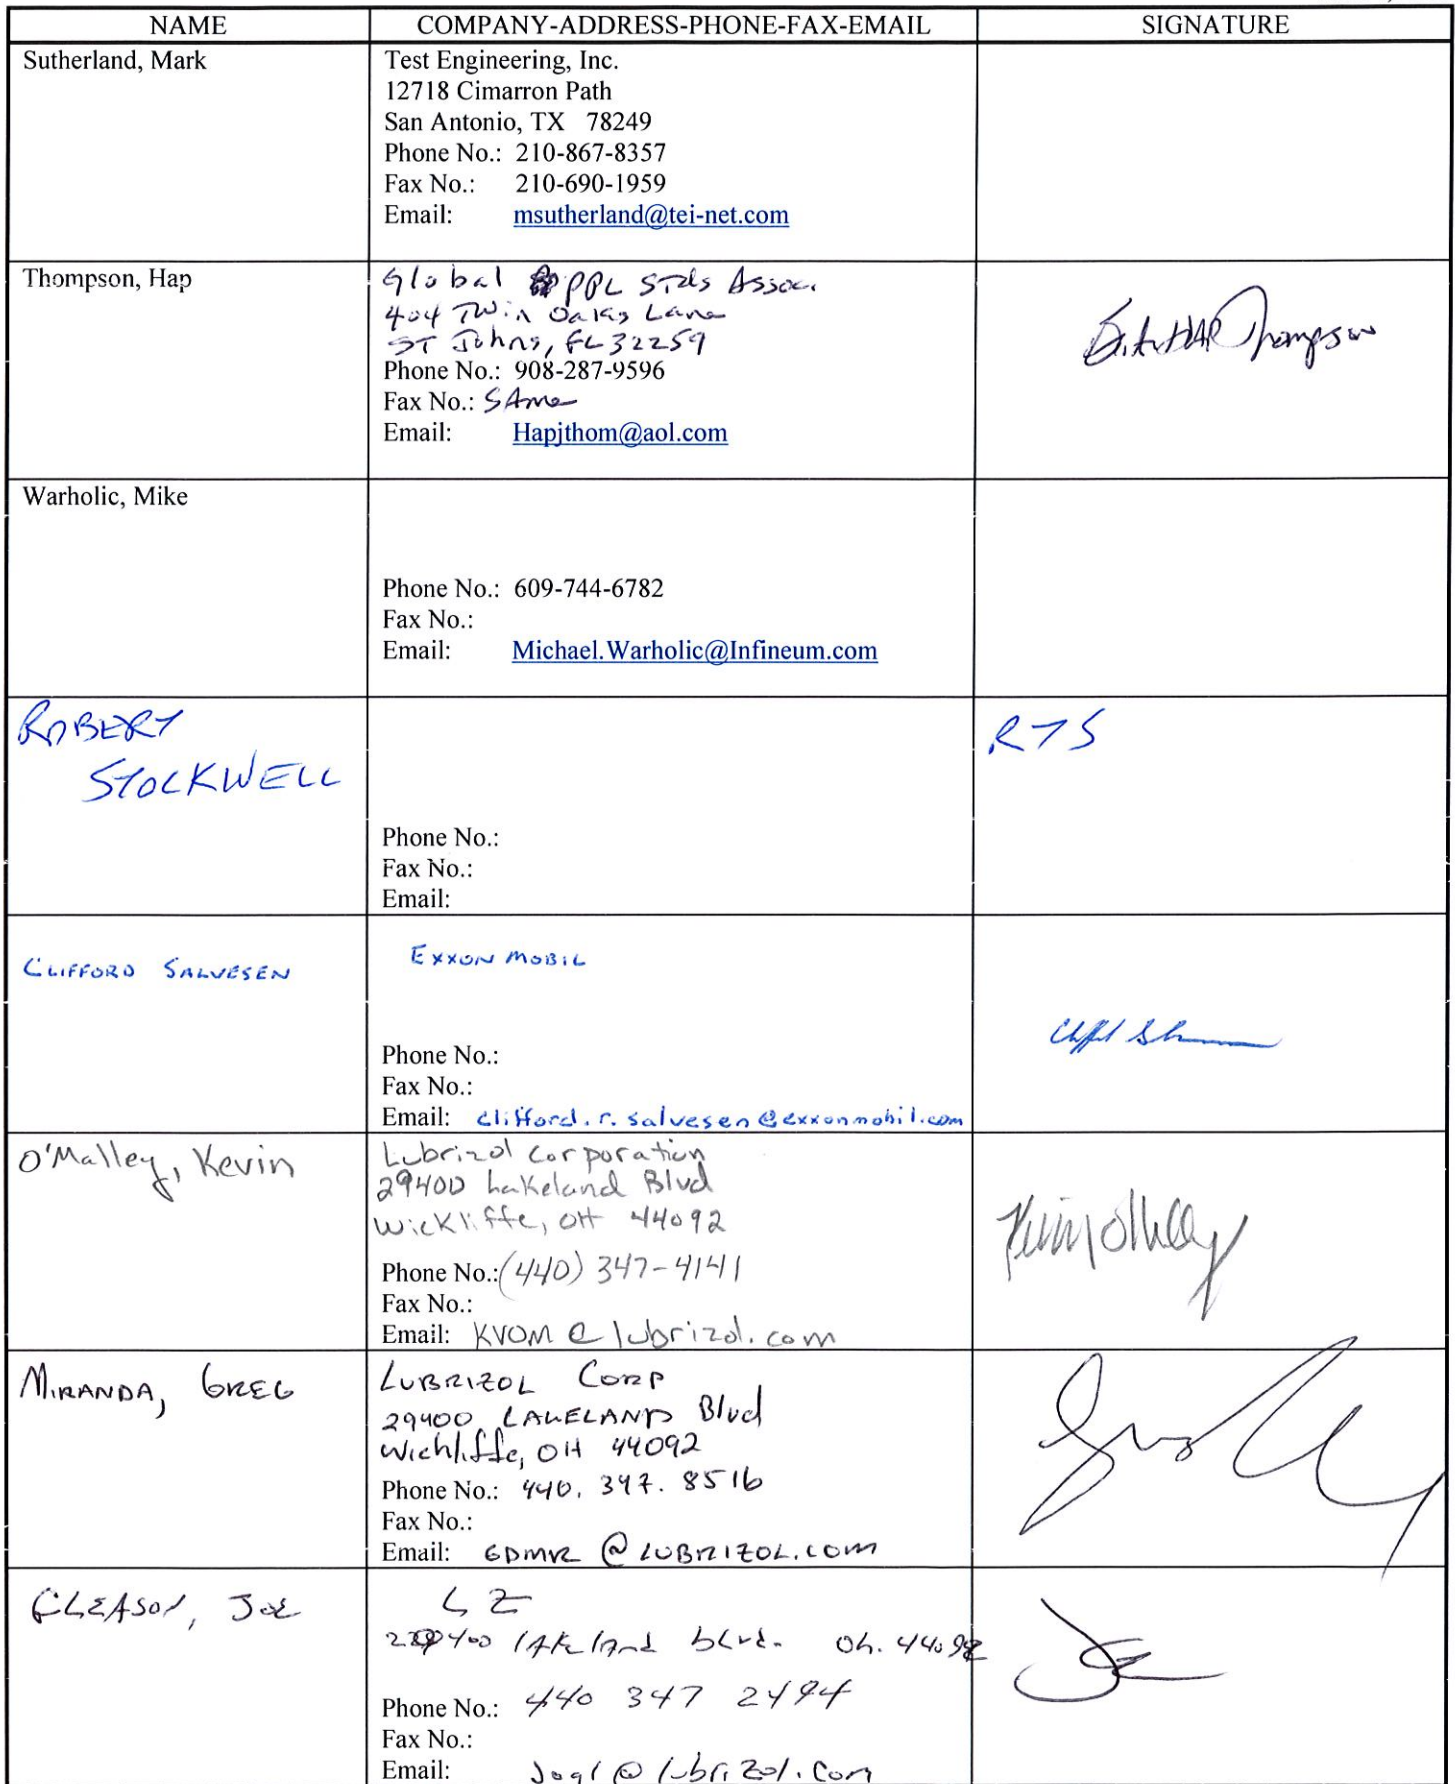 NAME COMPANY-ADDRESS-PHONE-FAX-EMAIL SIGNATURE
Sutherland, Mark
Test Engineering, Inc.
12718 Cimarron Path
San Antonio, TX 78249
Phone No.: 210-867-8357
Fax No.: 210-690-1959
Email: msutherland@tei-net.com
Thompson, Hap
Global PPL Stds Assoc.
404 Twin Oaks Lane
ST Johns, FL 32259
Phone No.: 908-287-9596
Fax No.: SAme
Email: Hapjthom@aol.com
Thompson
Warholic, Mike
Phone No.: 609-744-6782
Fax No.:
Email: Michael.Warholic@Infineum.com
ROBERT
STOCKWELL
Phone No.:
Fax No.:
Email:
RTS
CLIFFORD SALVESEN
EXXON MOBIL
Phone No.:
Fax No.:
Email: clifford.r.salvesen@exxonmobil.com
O'Malley, Kevin
Lubrizol Corporation
29400 Lakeland Blvd
Wickliffe, OH 44092
Phone No.: (440) 347-4141
Fax No.:
Email: KVOM@lubrizol.com
MIRANDA, GREG
LUBRIZOL CORP
29400 LAKELAND Blvd
Wickliffe, OH 44092
Phone No.: 440.347.8516
Fax No.:
Email: GDMR@LUBRIZOL.COM
GLEASON, Joe
LZ
29400 lAKeland blvd. Oh. 44092
Phone No.: 440 347 2494
Fax No.:
Email: Jogl@lubrizol.com